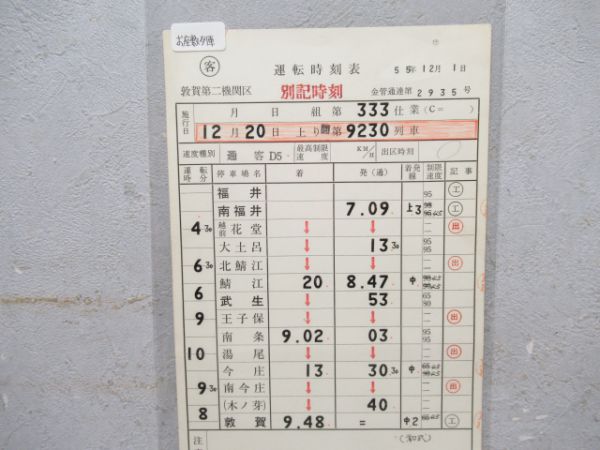 お座敷列車
客
運転時刻表
55年12月1日
敦賀第二機関区
別記時刻
金管通達第2935号
施行日
月 日 組 第 333 仕業 (C= )
12月20日 上り 第 9230 列車
速度種別 通客D5 最高制限速度 KM/H 出区時刻
運転時分 停車場名 着 発(通) 着発線 制限速度 記事
福井 95 工
南福井 7.09 上3 工
4 30 越前花堂 ↓ ↓ 出
大土呂 13 30 95 95
6 30 北鯖江 ↓ ↓ 出
鯖江 20 8.47 中
6 武生 ↓ 53
9 王子保 ↓ ↓ 出
南条 9.02 03 95 95
10 湯尾 ↓ ↓ 出
今庄 13 30 30 中
9 30 南今庄 ↓ ↓ 出
(木ノ芽) ↓ 40
8 敦賀 9.48 = 中2 工
注